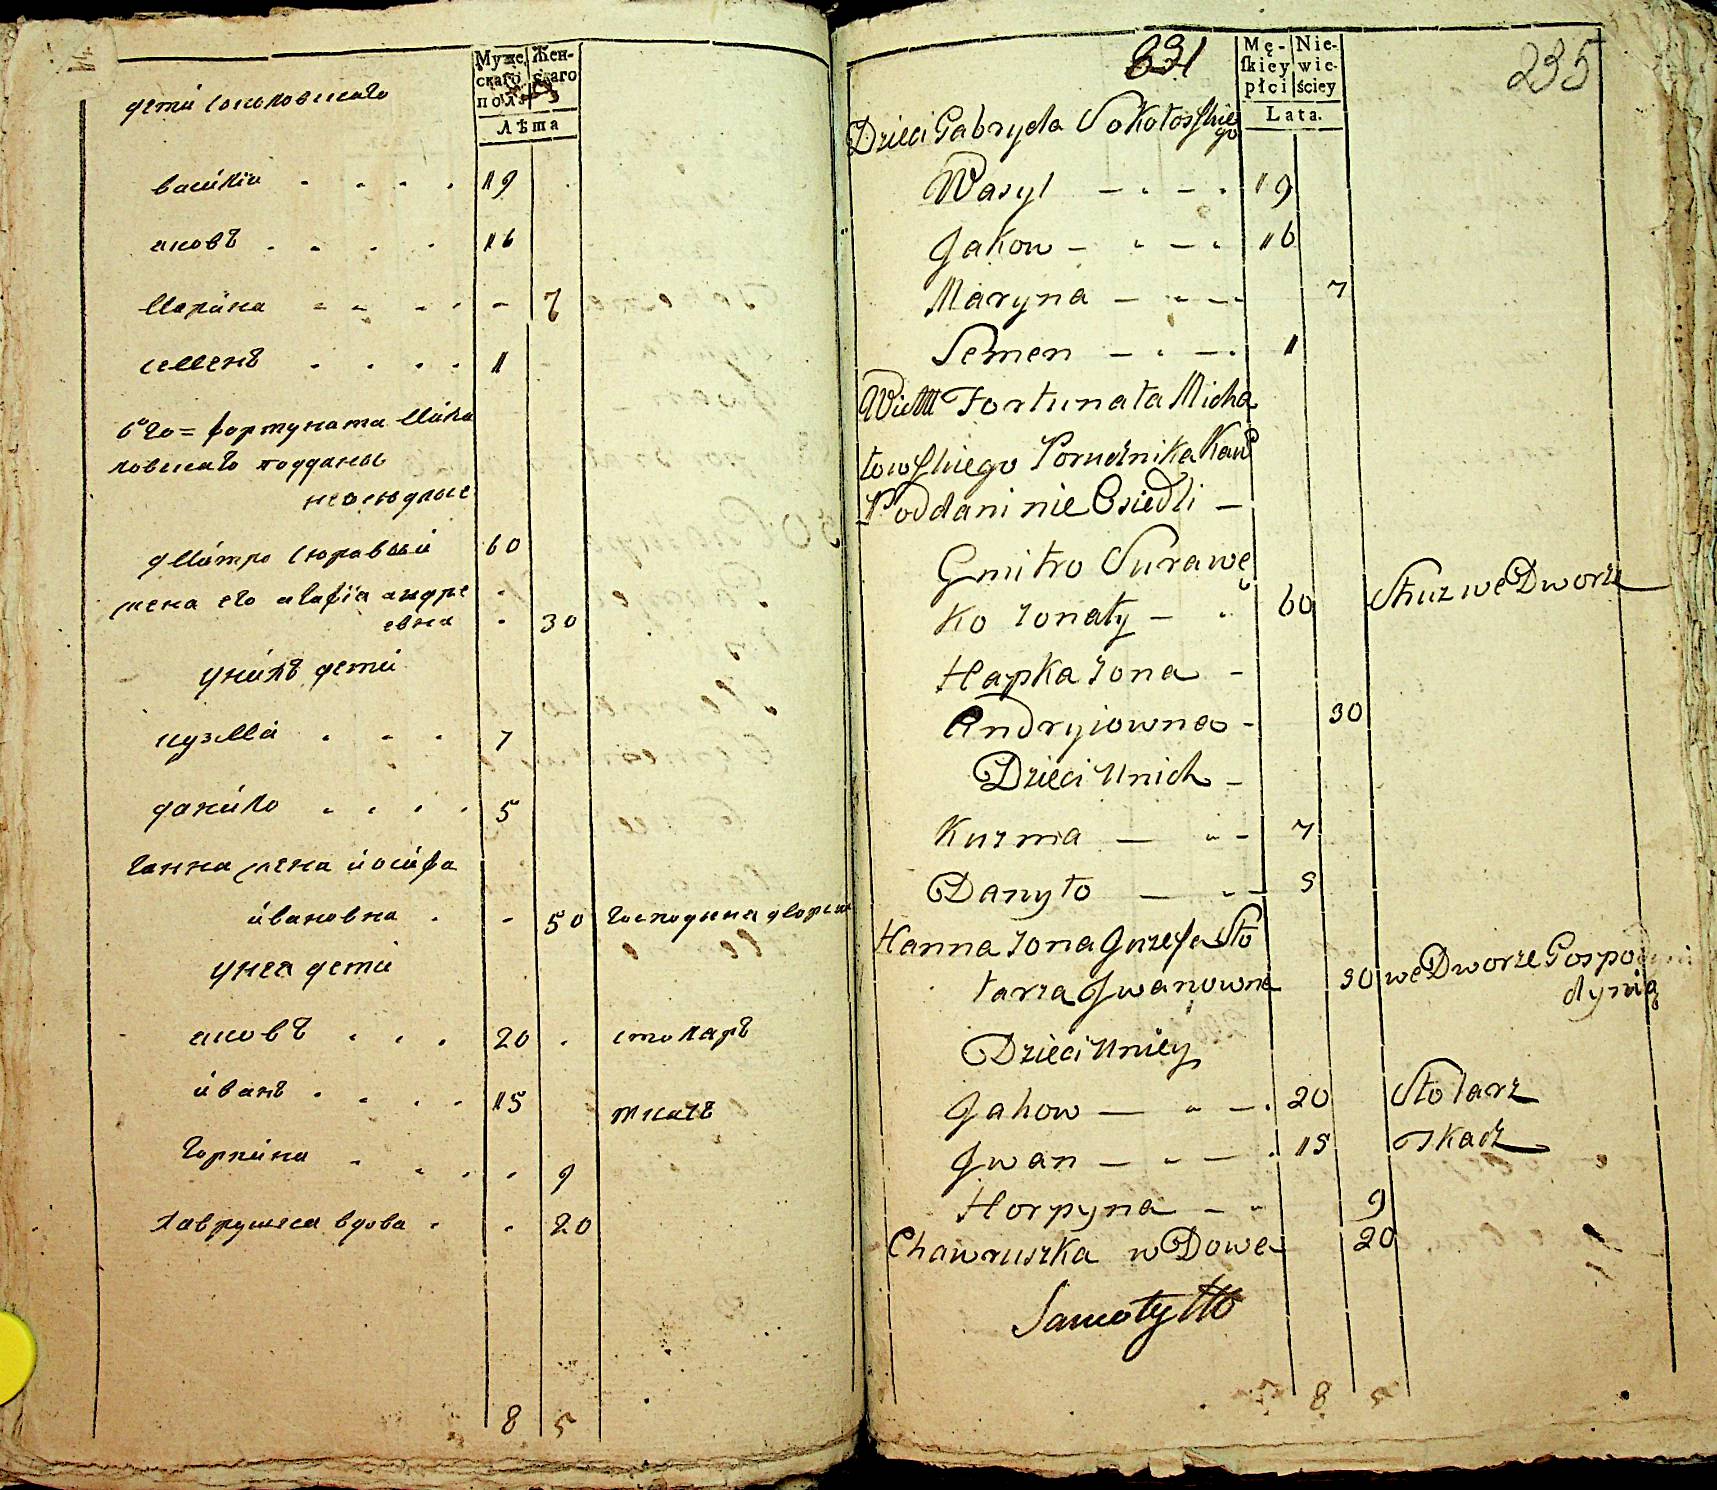 Муже- Жен-
скаго скаго
полъ
Лѣта
дети соколовскаго
василiи 19
аковъ 16
марина - 7
семенъ 1
фортуната миха
ловскаго подданы
неоседлые
дмитро 60
жена его агафiя андре
евна 30
унихъ дети
кузма 7
данило 5
ганна жена иосифа
ивановна - 50 господиня
унея дети
аковъ 20 столяръ
иванъ 15 ткачъ
горпина 9
хаврушка вдова 20
8 5
831
235
Mę- Nie-
ſkiey wie-
płci ściey
Lata.
Dzieci Gabryela Sokołoskie
go
Wasyl 19
Jakow 16
Maryna 7
Semen 1
Fortunata Micha
łowskiego Porucznika Kaw
Poddani nie Osiedli
Gmitro Surawe
ko Żonaty 60 Służ we Dworze
Hapka Żona
Andryiowna 30
Dzieci Unich
Kuzma 7
Danyło 5
Hanna Żona Juzefa Sto
larza Jwanowna 30 we Dworze Gospo
dynią
Dzieci Uniey
Jakow 20 Stolarz
Jwan 15 Tkacz
Horpyna 9
Chawruszka wDowa 20
8 5